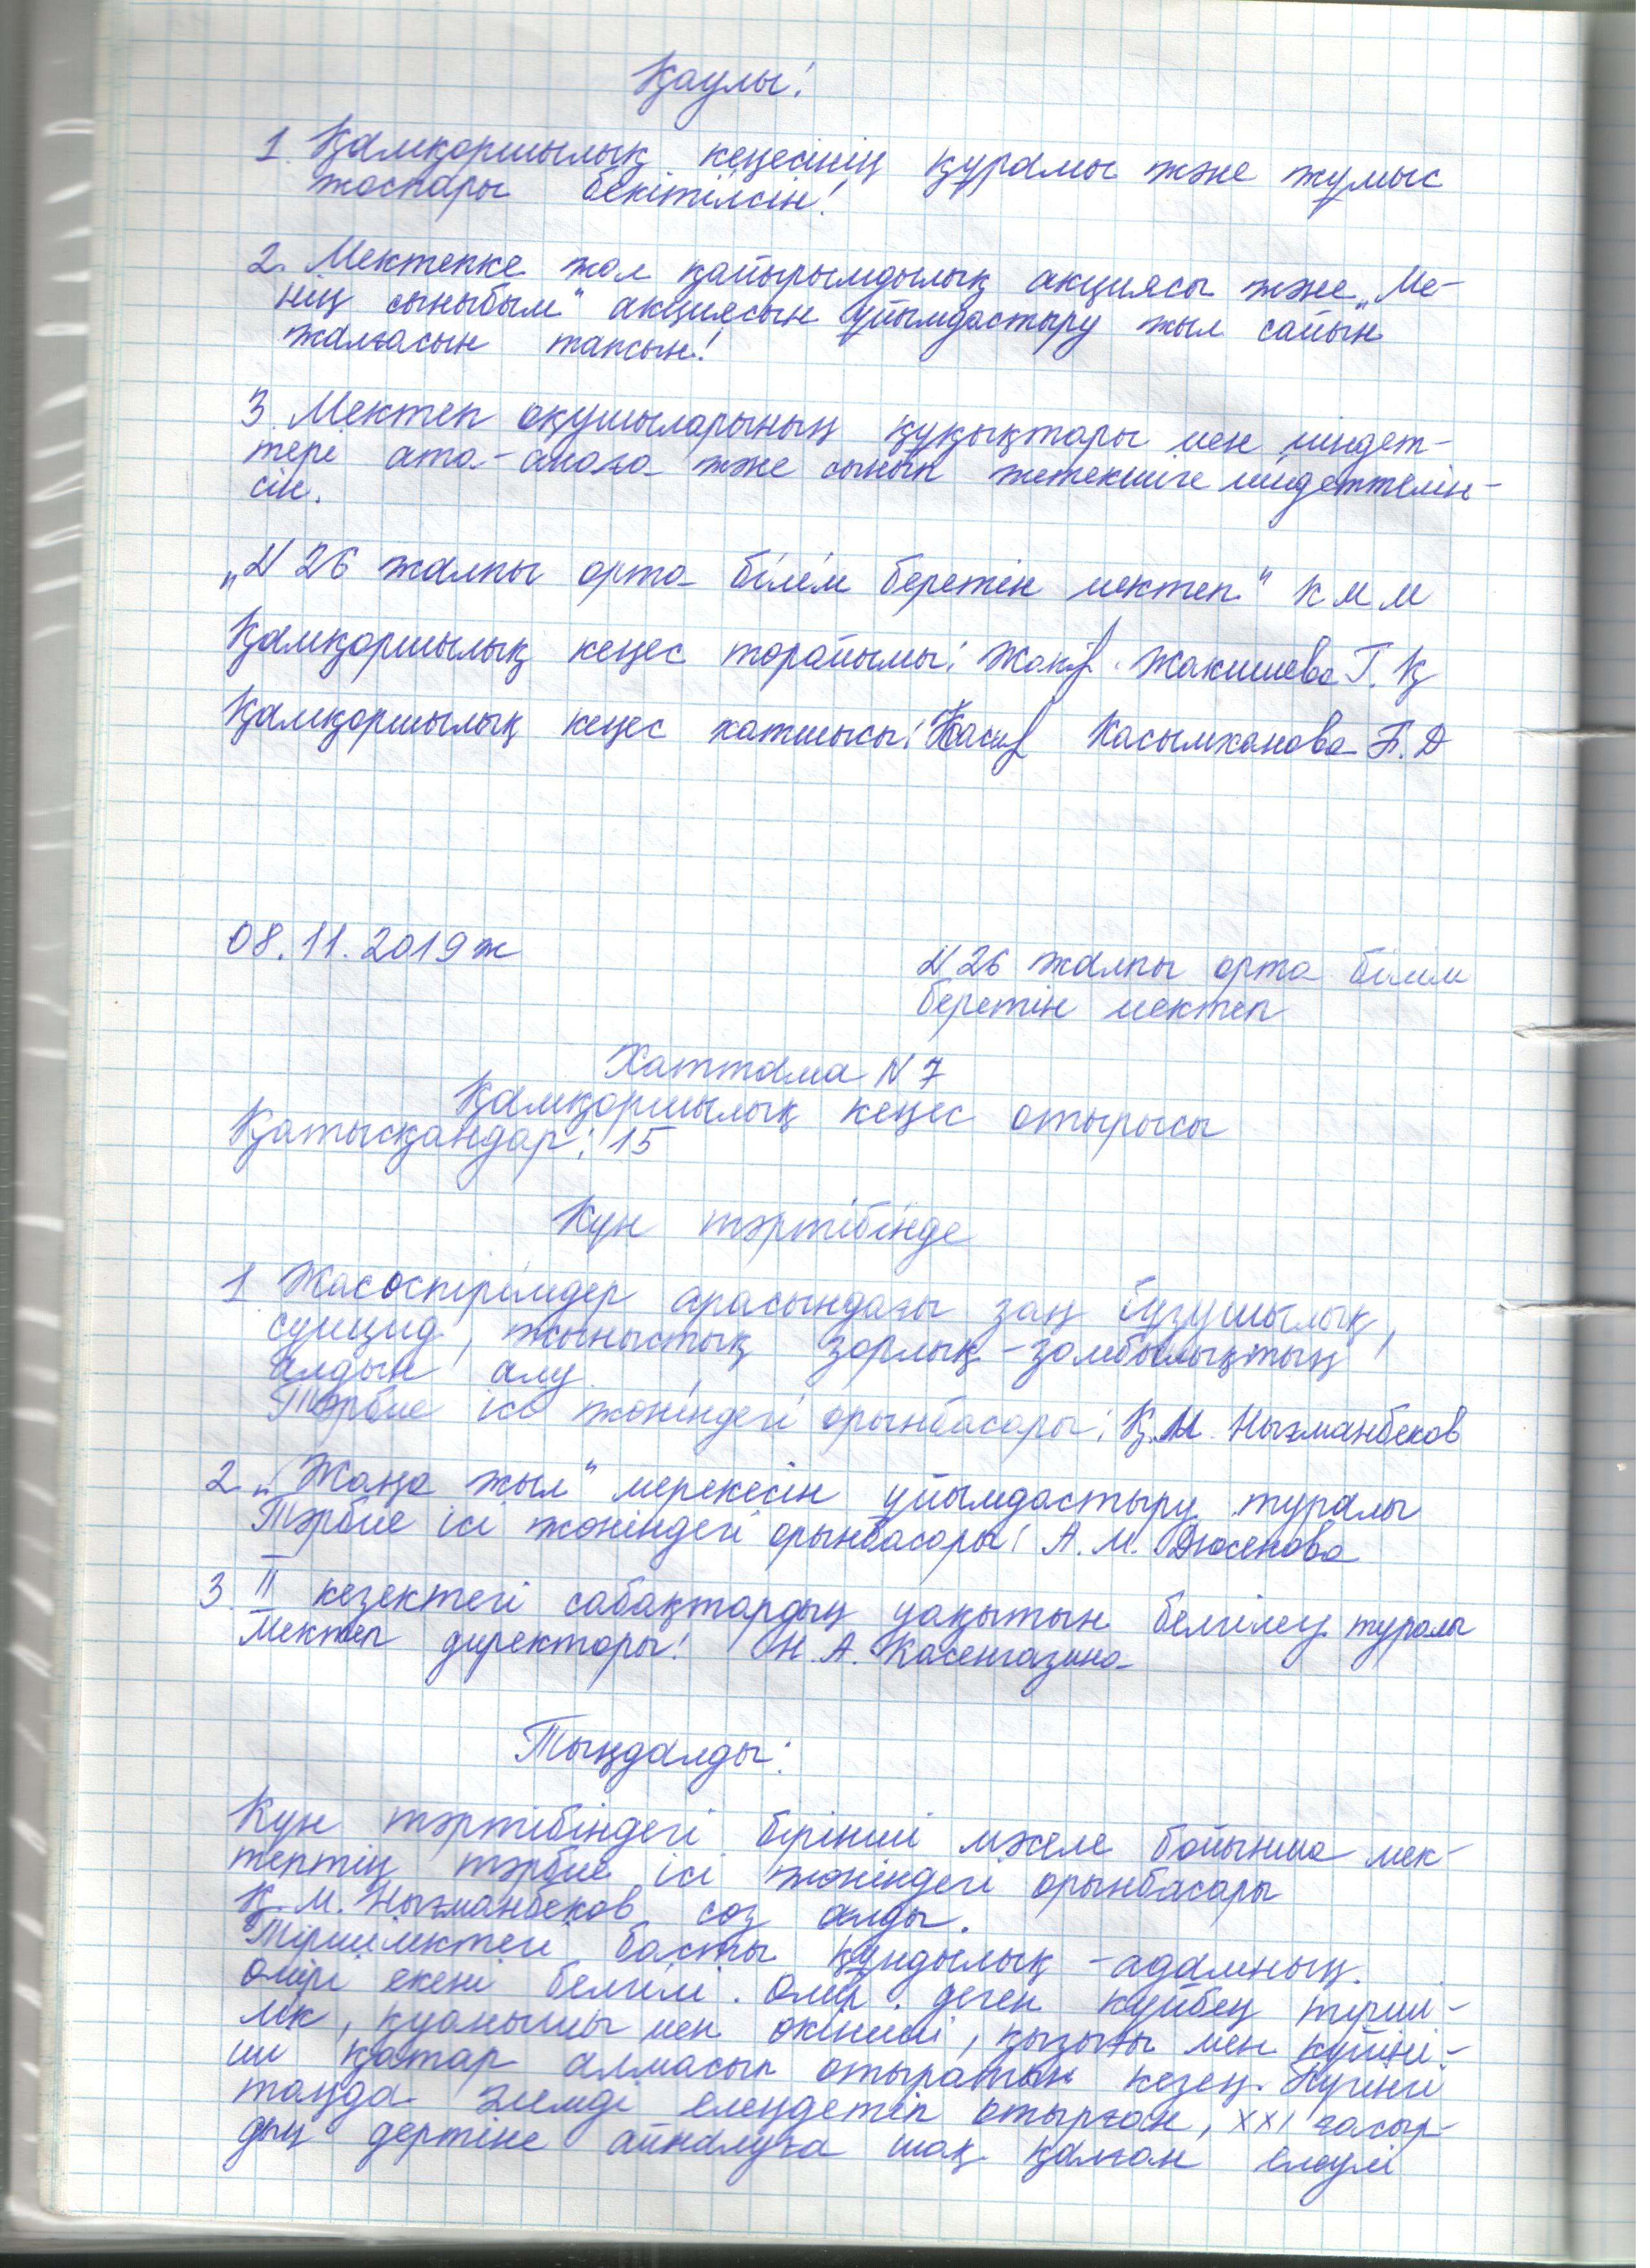 Қаулы:
1. Қамқоршылық кеңесінің құрамы және жұмыс
жоспары бекітілсін!
2. Мектепке жол қайырымдылық акциясы және „Ме-
нің сыныбым" акциясын ұйымдастыру жыл сайын
жалғасын тапсын!
3. Мектеп оқушыларының құқықтары мен міндет-
тері ата-анаға және сынып жетекшіге міндеттелін-
сін.
„N 26 жалпы орта білім беретін мектеп" КММ
Қамқоршылық кеңес төрайымы: Жакишева Г. Қ
Қамқоршылық кеңес хатшысы: Касымханова Б. Д
08.11.2019ж
N 26 жалпы орта білім
беретін мектеп
Хаттама N 7
Қамқоршылық кеңес отырысы
Қатысқандар: 15
Күн тәртібінде
1. Жасөспірімдер арасындағы заң бұзушылық,
суицид, жыныстық зорлық-зомбылықтың
алдын алу.
Тәрбие ісі жөніндегі орынбасары: Қ.М. Нығманбеков
2. „Жаңа жыл" мерекесін ұйымдастыру туралы
Тәрбие ісі жөніндегі орынбасары: А. М. Дюсенова
3. II кезектегі сабақтардың уақытын белгілеу туралы
Мектеп директоры: Н. А. Касенгазина
Тыңдалды:
Күн тәртібіндегі бірінші мәселе бойынша мек-
тептің тәрбие ісі жөніндегі орынбасары
Қ. М. Нығманбеков сөз алды.
Тіршіліктегі басты құндылық - адамның
өмірі екені белгілі. Өмір деген күйбең тірші-
лік, қуанышы мен өкініші, қызығы мен күйіні-
ші қатар алмасып отыратын кезең. Бүгінгі
таңда әлемді елеңдетіп отырған, XXI ғасыр-
дың дертіне айналуға шақ қалған елеулі